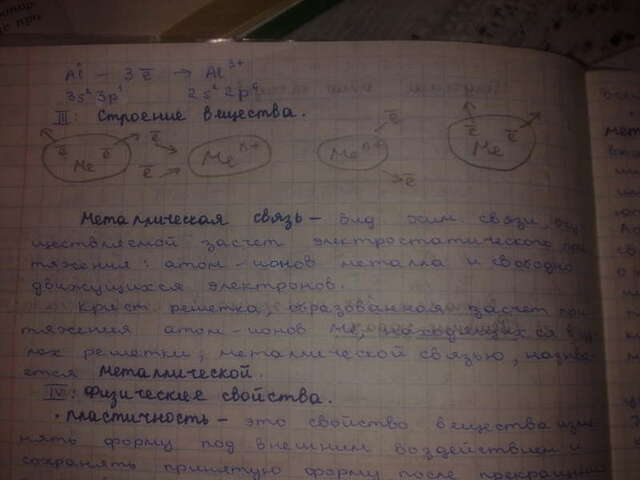 Al - 3ē → Al³⁺
3s² 3p¹ 2s² 2p⁶
III: Строение вещества.
ē ē Me ē ē Meⁿ⁺ Meⁿ⁺ ē ē ē ē Me
Металлическая связь – вид хим. связи, осу
ществляемой засчет электростатического при
тяжения: атом-ионов металла и свободно
движущихся электронов.
Крист. решетка, образованная засчет при
тяжения атом-ионов находящихся в
лах решетки, металлической связью, называ
ется металлической.
IV: Физические свойства.
• Пластичность – это свойство вещества изме
нять форму под внешним воздействием и
сохранять принятую форму после прекращения